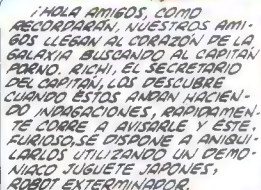 ¡HOLA AMIGOS, COMO
RECORDARÁN, NUESTROS AMI-
GOS LLEGAN AL CORAZÓN DE LA
GALAXIA BUSCANDO AL CAPITÁN
PORNO. RICHI, EL SECRETARIO
DEL CAPITÁN, LOS DESCUBRE
CUANDO ÉSTOS ANDAN HACIEN-
DO INDAGACIONES, RAPIDAMEN-
TE CORRE A AVISARLE Y ESTE,
FURIOSO, SE DISPONE A ANIQUI-
LARLOS UTILIZANDO UN DEMO-
NIACO JUGUETE JAPONES,
ROBOT EXTERMINADOR.